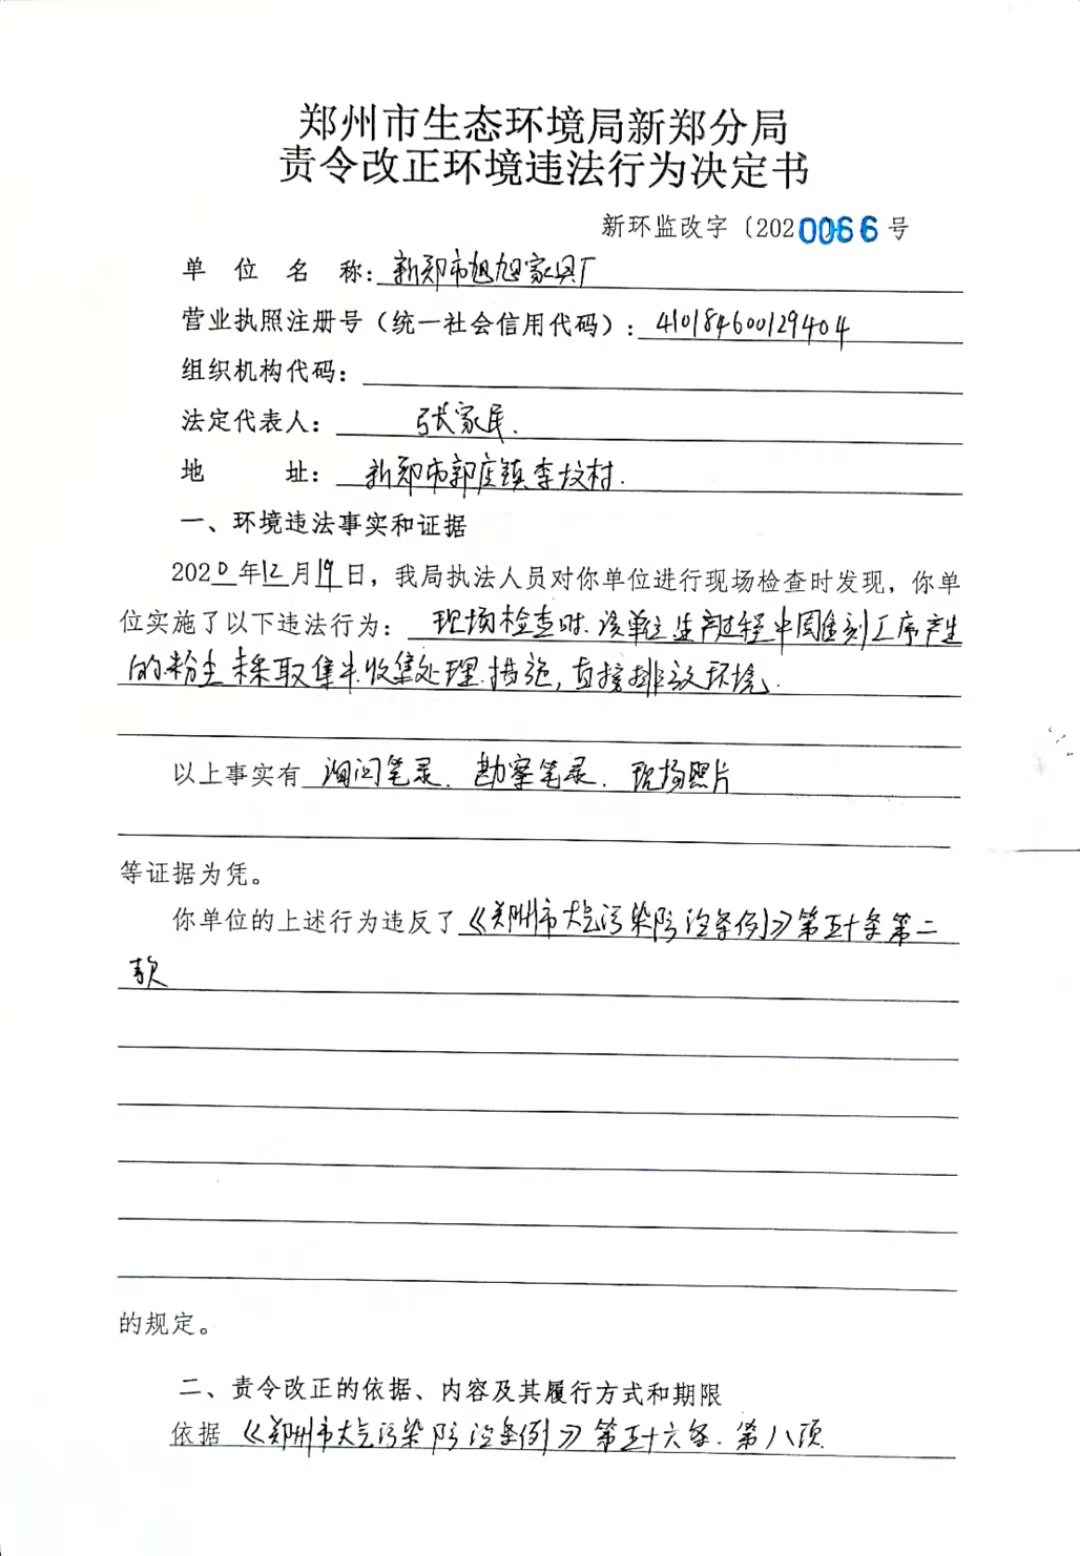 郑州市生态环境局新郑分局
责令改正环境违法行为决定书
新环监改字〔2020066号
单位名称：新郑市旭旭家具厂
营业执照注册号（统一社会信用代码）：410184600129404
组织机构代码：
法定代表人：张家民.
地址：新郑市郭店镇李坟村.
一、环境违法事实和证据
2020年12月19日，我局执法人员对你单位进行现场检查时发现，你单
位实施了以下违法行为：现场检查时.该单位生产过程中因雕刻工序产生
的粉尘未采取集中收集处理措施，直接排放环境.
以上事实有询问笔录.勘察笔录.现场照片
等证据为凭。
你单位的上述行为违反了《郑州市大气污染防治条例》第五十条第二
款
的规定。
二、责令改正的依据、内容及其履行方式和期限
依据《郑州市大气污染防治条例》第五十六条.第八项